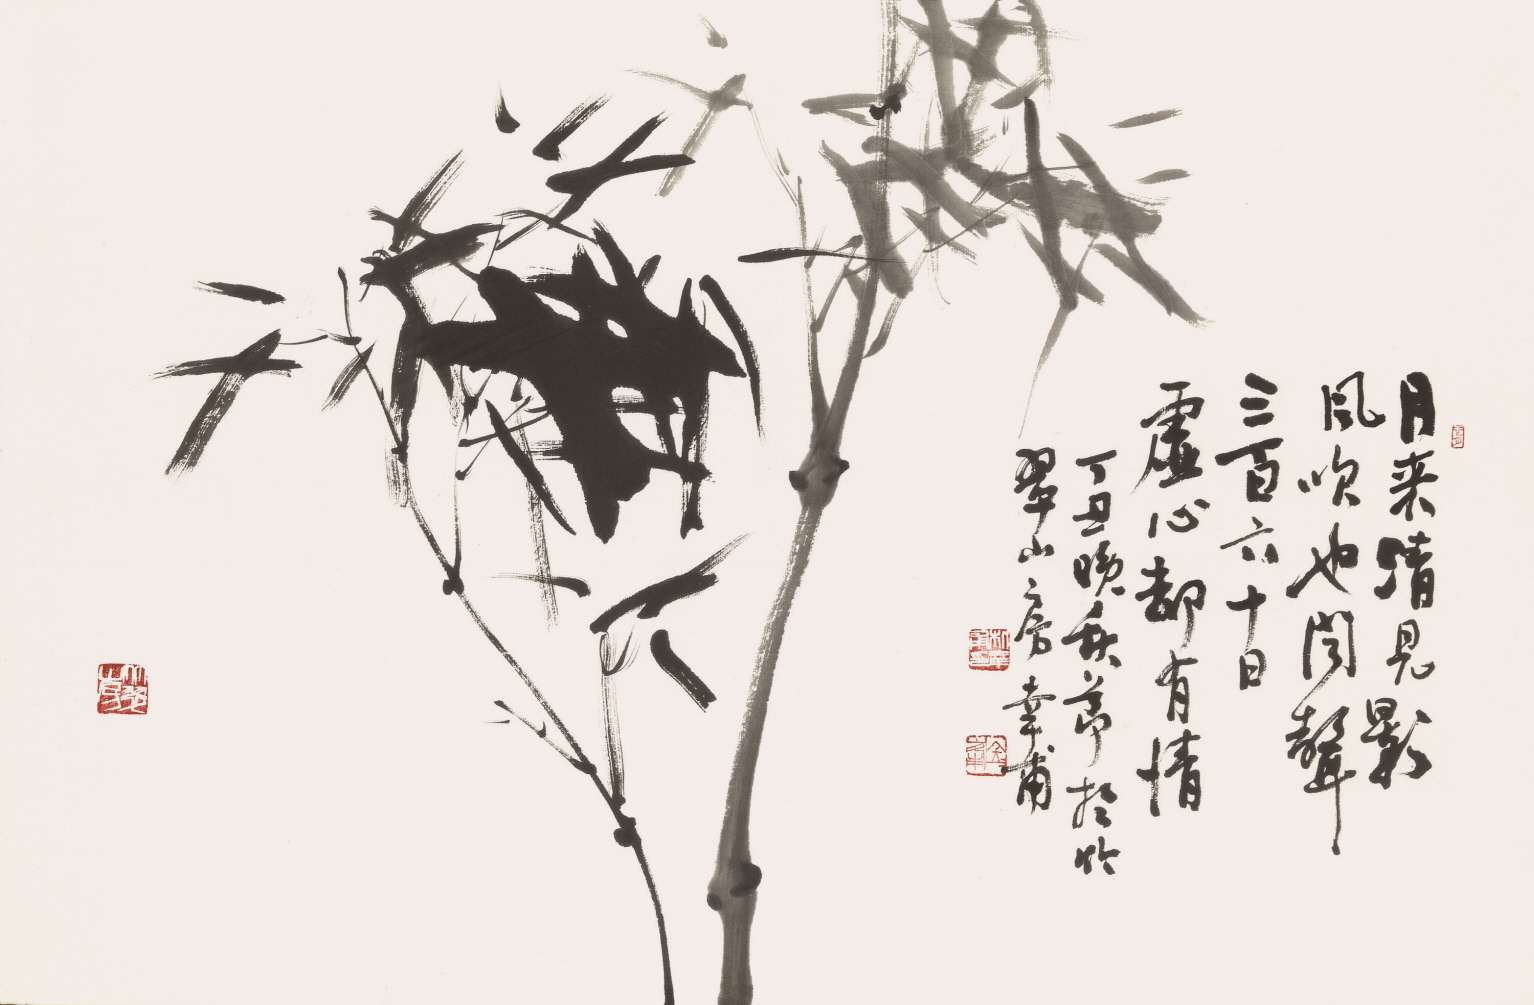 月来清見影
風吹也闻聲
三百六十日
虚心却有情
丁丑晚秋节於吟
翠山房 幸甫